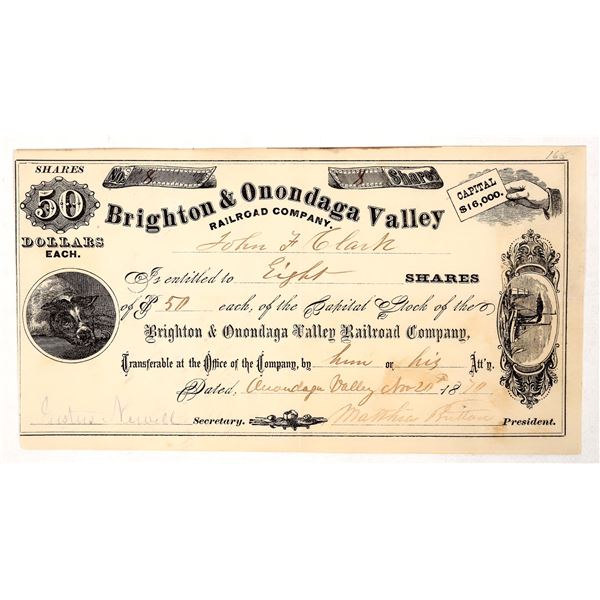 165
SHARES
No. 8
8 Shares
50
DOLLARS
EACH.
CAPITAL
$16,000.
Brighton & Onondaga Valley
RAILROAD COMPANY.
John F Clark
Is entitled to Eight SHARES
of $ 50 each, of the Capital Stock of the
Brighton & Onondaga Valley Railroad Company,
Transferable at the Office of the Company, by him or his Att'y.
Dated, Onondaga Valley Nov 20th 1870
Newell Secretary. Matthias Britton President.